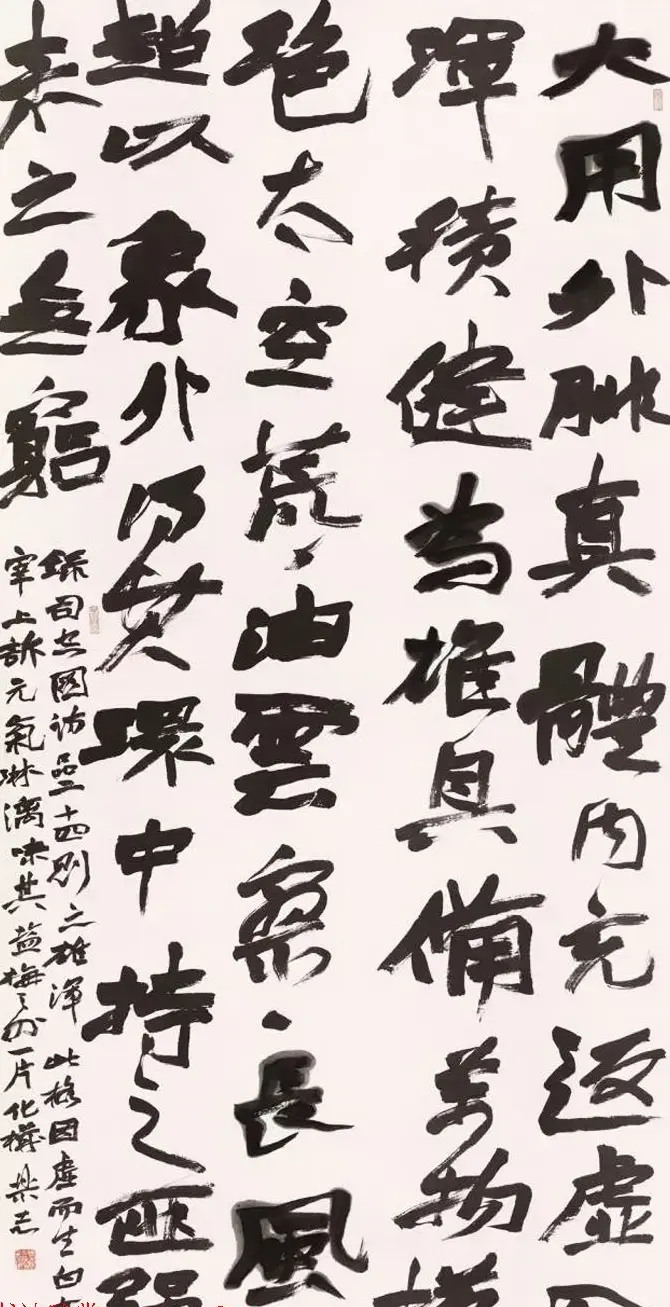 大用外腓真體內充返虛入
渾積健為雄具備萬物橫
絕太空荒々油雲寥々長風
超以象外得其環中持之匪強
來之無窮
錄司空圖詩品二十四則之雄渾 此格因虛而生白
宰上訴元氣淋漓味其盐梅之外一片化機